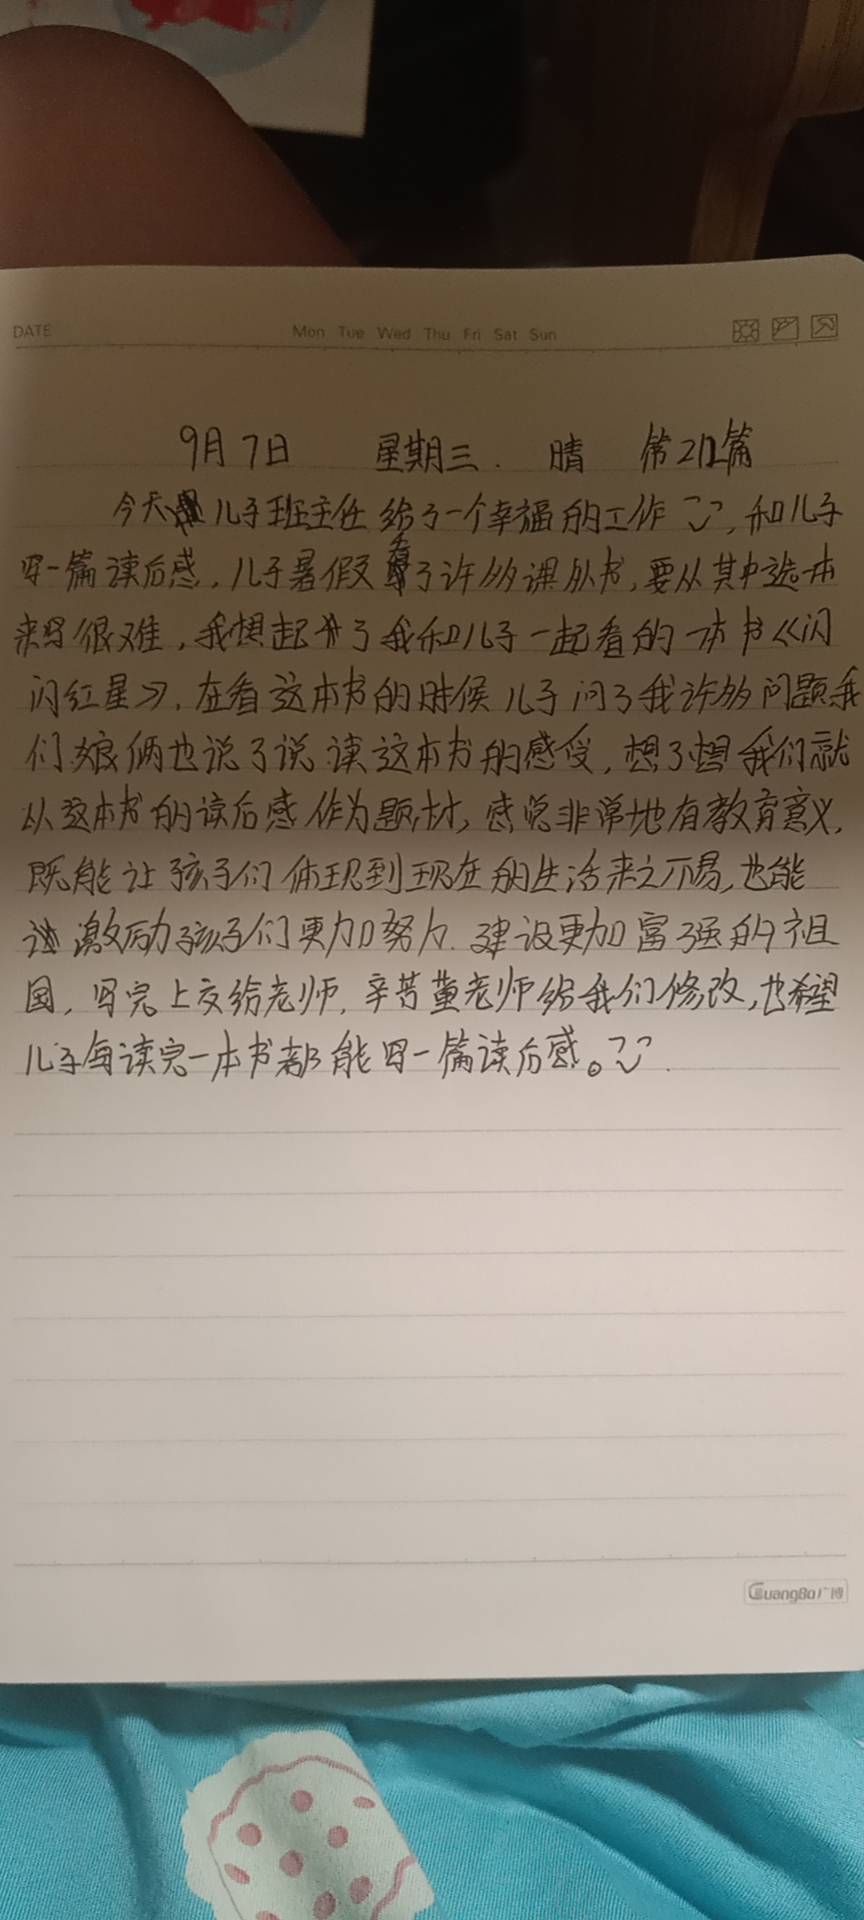 DATE Mon Tue Wed Thu Fri Sat Sun
9月7日 星期三. 晴 第212篇
今天儿子班主任给了一个幸福的工作, 和儿子
写一篇读后感, 儿子暑假看了许多课外书, 要从其中选一本
来写很难, 我想起了我和儿子一起看的一本书《闪
闪红星》, 在看这本书的时候儿子问了我许多问题我
们娘俩也说了说读这本书的感受, 想了想我们就
从这本书的读后感作为题材, 感觉非常地有教育意义,
既能让孩子们体现到现在的生活来之不易, 也能
激励孩子们更加努力. 建设更加富强的祖
国, 写完上交给老师, 辛苦董老师给我们修改, 也希望
儿子每读完一本书都能写一篇读后感。
GuangBo广博